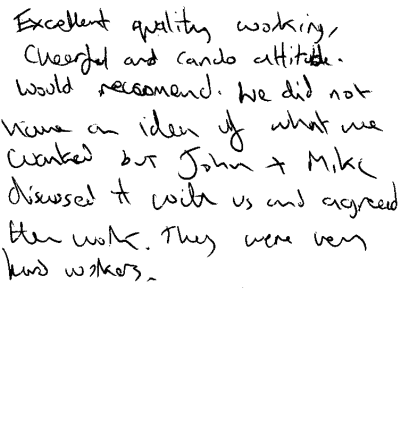 Excellent quality working,
Cheerful and cando attitude.
Would recommend. We did not
have an idea of what we
wanked but John + Mike
discussed it with us and agreed
the work. They were very
hard workers.